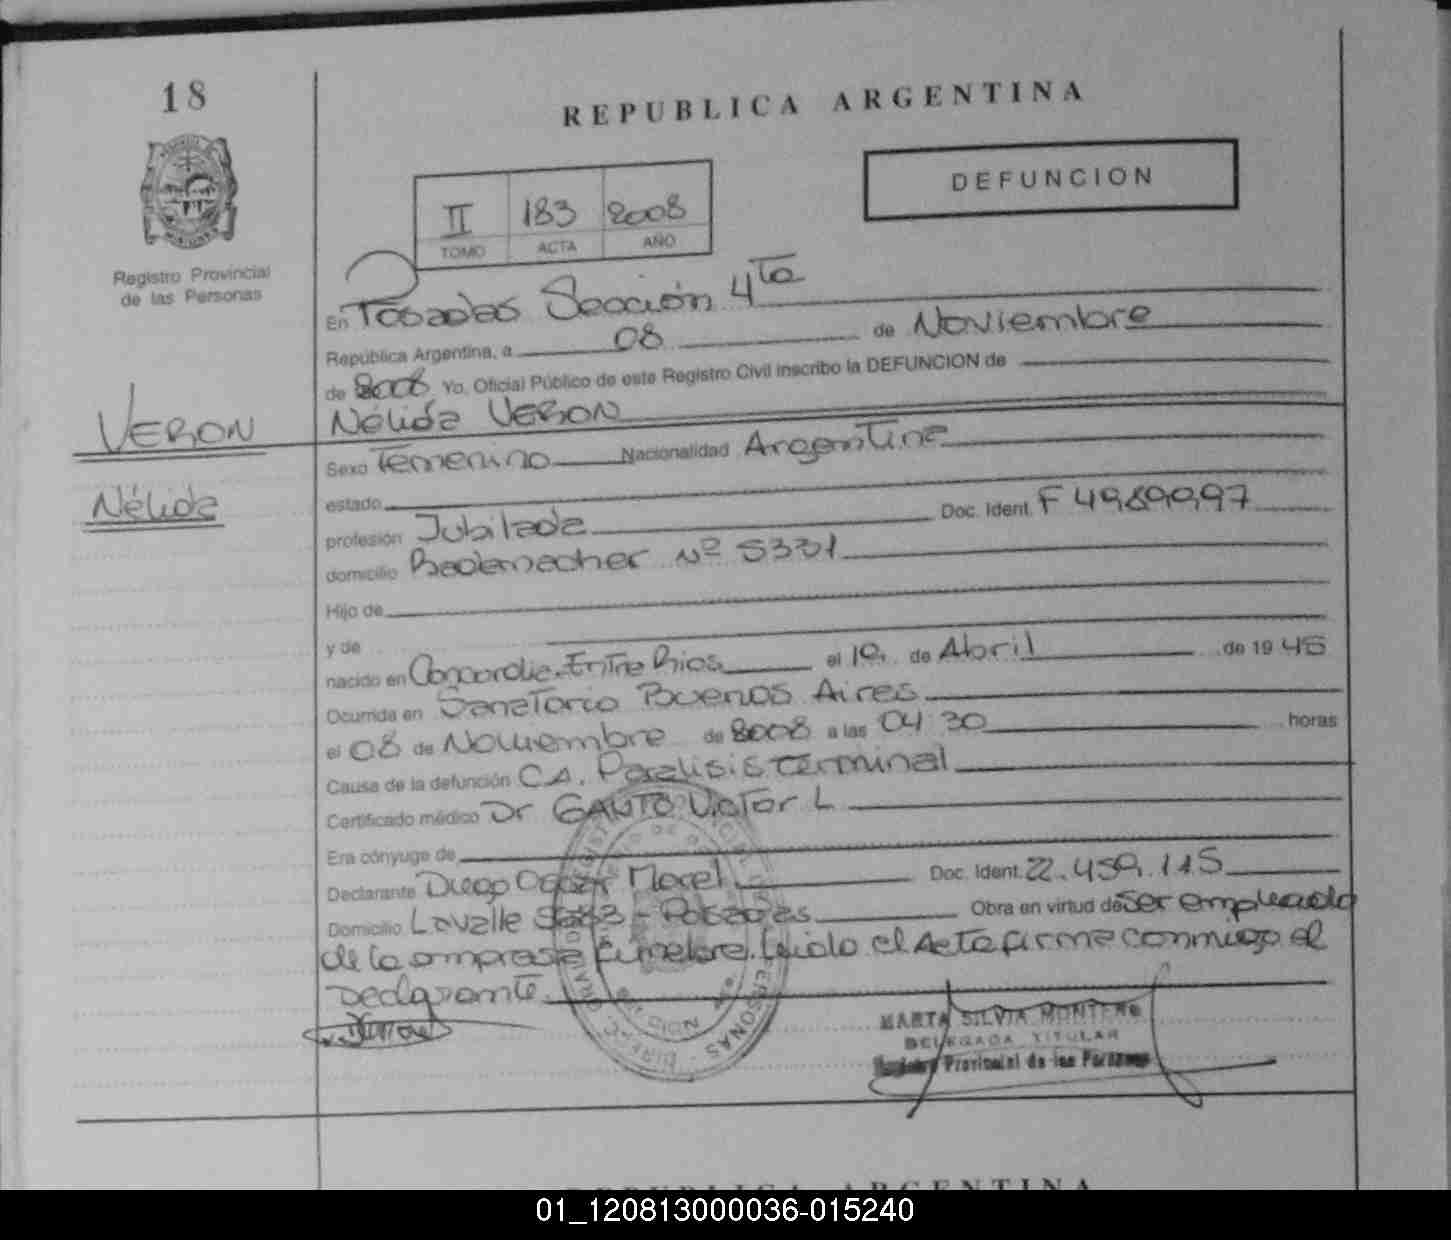 18
REPUBLICA ARGENTINA
DEFUNCION
II 183 2008
TOMO ACTA AÑO
Registro Provincial
de las Personas
En Posadas Sección 4ta
República Argentina, a 08 de Noviembre
de 2008 Yo, Oficial Público de este Registro Civil inscribo la DEFUNCION de
VERON
Nélida VERON
Sexo Femenino Nacionalidad Argentina
Nélida
estado
Doc. Ident. F
profesión Jubilada
domicilio Rademacher Nº 5331
Hijo de
y de
nacido en Concordia-Entre Rios el 10 de Abril de 1945
Ocurrida en Sanatorio Buenos Aires
el 08 de Noviembre de 2008 a las 04 30 horas
Causa de la defunción Ca. Paralisis terminal
Certificado médico Dr Victor L
Era cónyuge de
Declarante Diego Morel Doc. Ident. 22.459.115
Domicilio Lavalle - Posadas Obra en virtud de Ser empleado
de la empresa fúnebre. Leida el Acta firma conmigo el
Declarante
MARTA SILVIA MONTERO
DELEGADA TITULAR
Registro Provincial de las Personas
REPUBLICA ARGENTINA
01_120813000036-015240